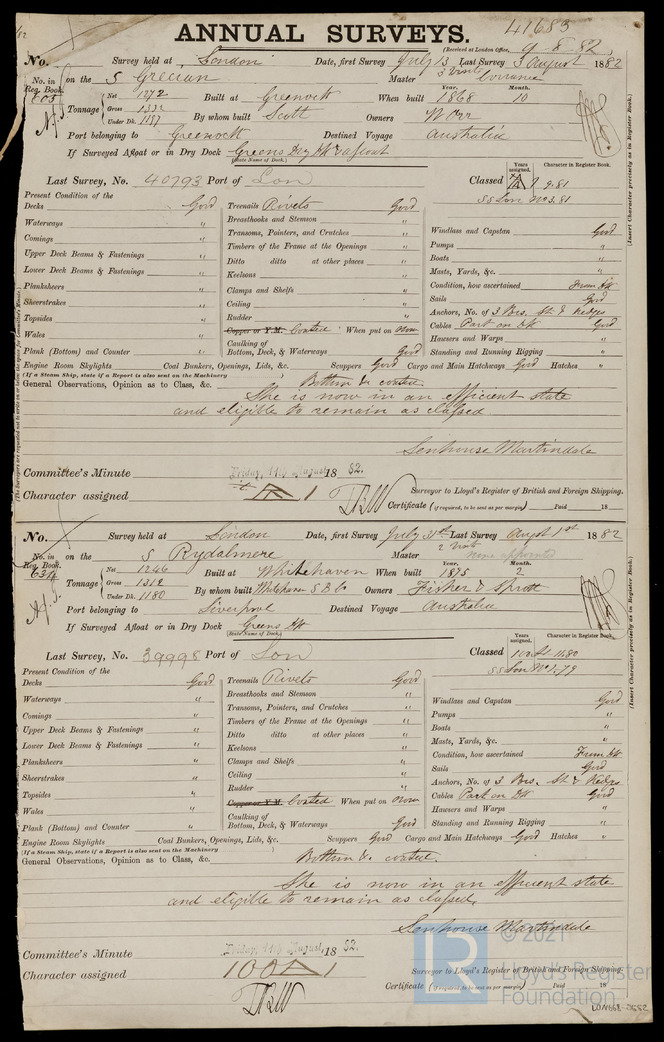 41683
ANNUAL SURVEYS.
(Received at London Office, 9-8-82
No. Survey held at London Date, first Survey July 13 Last Survey 3 August 1882
No. in Reg. Book. on the S Grecian Master
Tonnage Net 1272 Gross 1332 Under Dk. 1137 Built at Greenock When built Year. 1868 Month. 10
By whom built Scott Owners W Orr
Port belonging to Greenock Destined Voyage Australia
If Surveyed Afloat or in Dry Dock Greens Dry Dk & afloat
(State Name of Dock.)
Last Survey, No. 40793 Port of Lon Classed Years assigned. A 1 9.81 Character in Register Book.
SS Lon No 3.81
Present Condition of the
Decks Good Treenails Rivets Good
Waterways " Breasthooks and Stemson " Windlass and Capstan Good
Comings " Transoms, Pointers, and Crutches " Pumps "
Upper Deck Beams & Fastenings " Timbers of the Frame at the Openings " Boats "
Lower Deck Beams & Fastenings " Ditto ditto at other places " Masts, Yards, &c. "
Planksheers " Keelsons " Condition, how ascertained From Dk
Sheerstrakes " Clamps and Shelfs " Sails Good
Topsides " Ceiling " Anchors, No. of 3 Brs. St & Kedges
Wales " Rudder " Cables Part on Dk Good
Copper or Y.M. Coated When put on now Hawsers and Warps "
Plank (Bottom) and Counter " Caulking of Bottom, Deck, & Waterways Good Standing and Running Rigging "
Engine Room Skylights Coal Bunkers, Openings, Lids, &c. Scuppers Good Cargo and Main Hatchways Good Hatches "
(If a Steam Ship, state if a Report is also sent on the Machinery )
General Observations, Opinion as to Class, &c. Bottom &c coated.
She is now in an efficient state
and eligible to remain as classed
Senhouse Martindale
Committee's Minute Friday, 11th August 1882.
Character assigned A 1
Surveyor to Lloyd's Register of British and Foreign Shipping.
Certificate (if required, to be sent as per margin) Paid 18
No. Survey held at London Date, first Survey July 31st Last Survey Augst 1st 1882
No. in Reg. Book. 634 on the S Rydalmere Master none appointed
Tonnage Net 1246 Gross 1312 Under Dk. 1180 Built at Whitehaven When built Year. 1875 Month. 2
By whom built Whitehaven S B Co Owners Fisher & Sprott
Port belonging to Liverpool Destined Voyage Australia
If Surveyed Afloat or in Dry Dock Greens Dk
(State Name of Dock.)
Last Survey, No. 39998 Port of Lon Classed Years assigned. Character in Register Book.
SS Lon No 1.79
Present Condition of the
Decks Good Treenails Rivets Good
Waterways " Breasthooks and Stemson " Windlass and Capstan Good
Comings " Transoms, Pointers, and Crutches " Pumps "
Upper Deck Beams & Fastenings " Timbers of the Frame at the Openings " Boats "
Lower Deck Beams & Fastenings " Ditto ditto at other places " Masts, Yards, &c. "
Planksheers " Keelsons " Condition, how ascertained From Dk
Sheerstrakes " Clamps and Shelfs " Sails Good
Topsides " Ceiling " Anchors, No. of 3 Brs. St & Kedges
Wales " Rudder " Cables Part on Dk Good
Copper or Y.M. Coated When put on now Hawsers and Warps "
Plank (Bottom) and Counter " Caulking of Bottom, Deck, & Waterways Good Standing and Running Rigging "
Engine Room Skylights Coal Bunkers, Openings, Lids, &c. Scuppers Good Cargo and Main Hatchways Good Hatches "
(If a Steam Ship, state if a Report is also sent on the Machinery )
General Observations, Opinion as to Class, &c. Bottom &c coated.
She is now in an efficient state
and eligible to remain as classed,
Senhouse Martindale
Committee's Minute Friday, 11th August 1882.
Character assigned 100 A 1
Surveyor to Lloyd's Register of British and Foreign Shipping.
Certificate (if required, to be sent as per margin) Paid 18
(Insert Character precisely as in Register Book.)
(Insert Character precisely as in Register Book.)
LR © 2021 Lloyd's Register Foundation